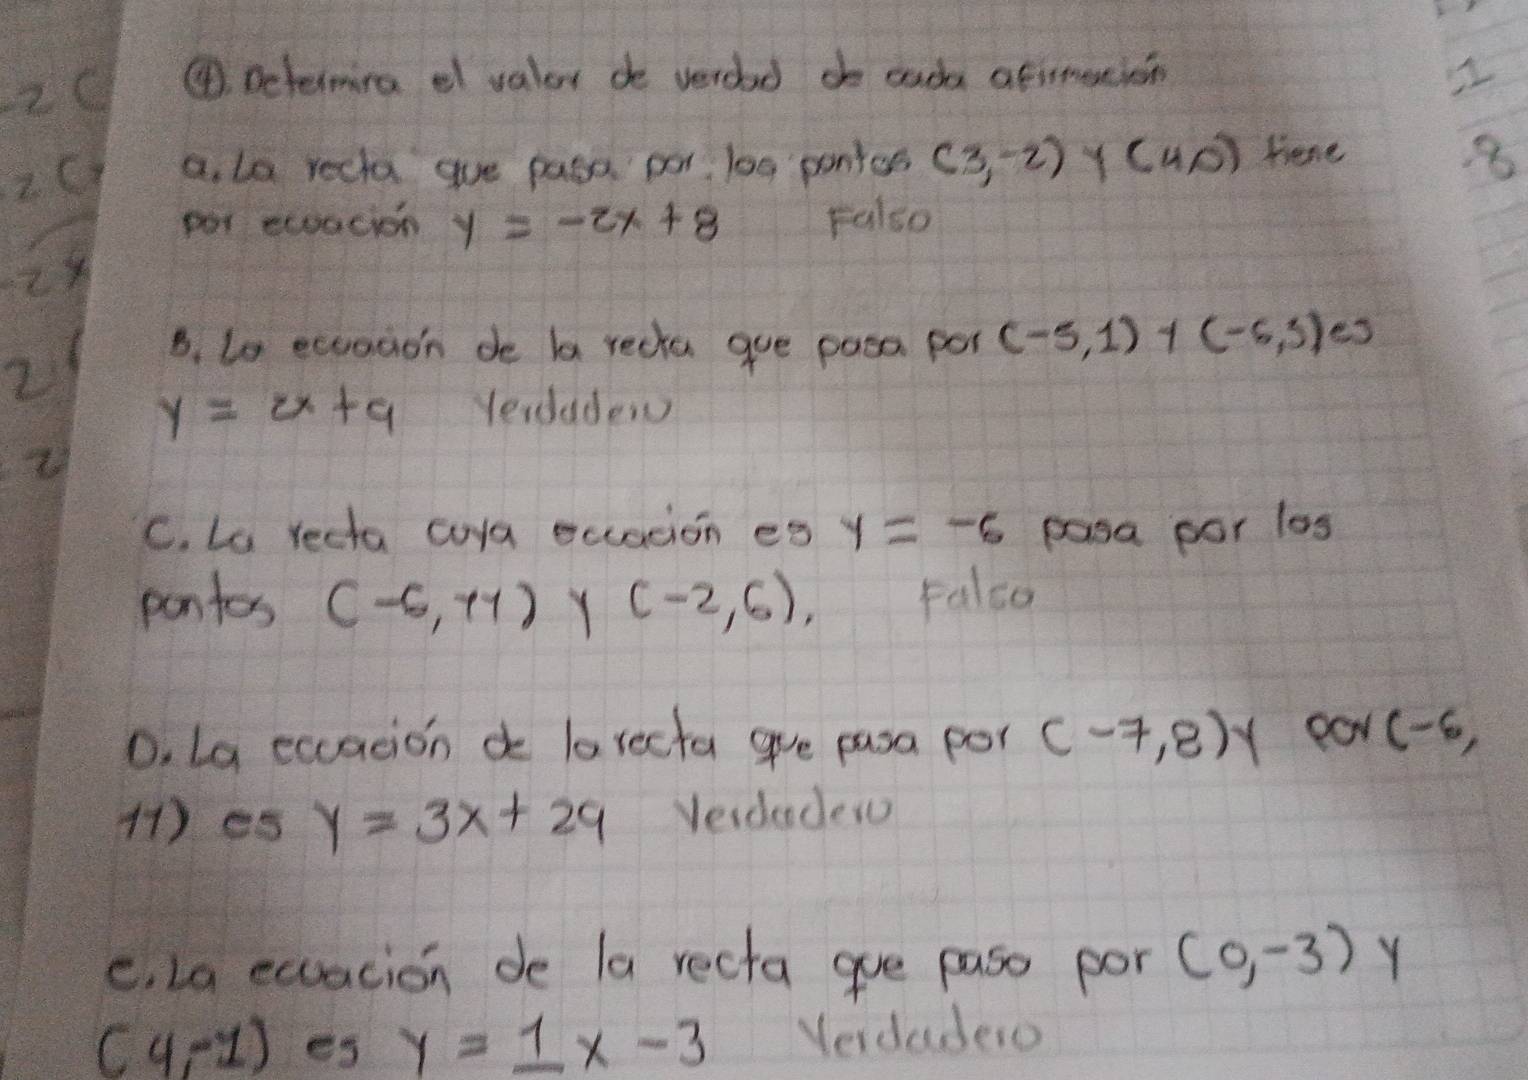 ④. Determina el valor de verdad de cada afirmación
a. La recta que pasa por los pontos (3,-2) y (4,0) tiene
por ecuación y = -2x + 8 Falso
B. La ecuación de la recta que pasa por (-5,1) y (-6,3) es
y = 2x + 9 Verdadero
C. La recta cuya ecuación es y = -6 pasa por los
pontos (-6,11) y (-2,6). Falso
D. La ecuación de la recta que pasa por (-7,8) y por (-6,
11) es y = 3x + 29 Verdadero
e. La ecuación de la recta que paso por (0,-3) y
(4,-1) es y = 1 x - 3 Verdadero